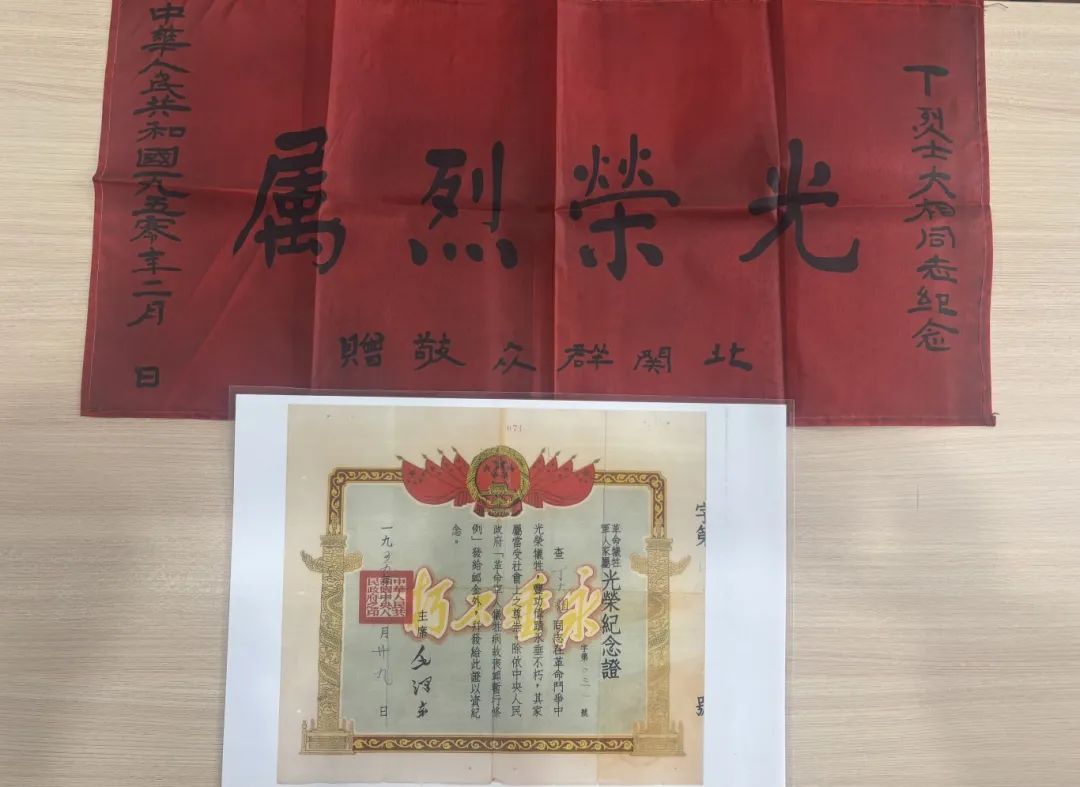 丁烈士大相同志纪念
光榮烈属
北関群众敬贈
中華人民共和國一九五零年二月 日
071
字第 號
革命犧牲
軍人家屬
光榮紀念證
字第 號
查丁大相同志在革命鬥爭中
光榮犧牲,豐功偉蹟永垂不朽,其家
屬當受社會上之尊崇。除依中央人民
政府「革命軍人犧牲病故褒卹暫行條
例」發給卹金外,并發給此證以資紀
念。
主席 毛澤東
一九五 年 月廿九日
永垂不朽
中華人民共和國中央人民政府之印